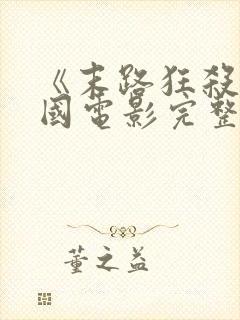 《末路狂殺
國電影完整
董之益